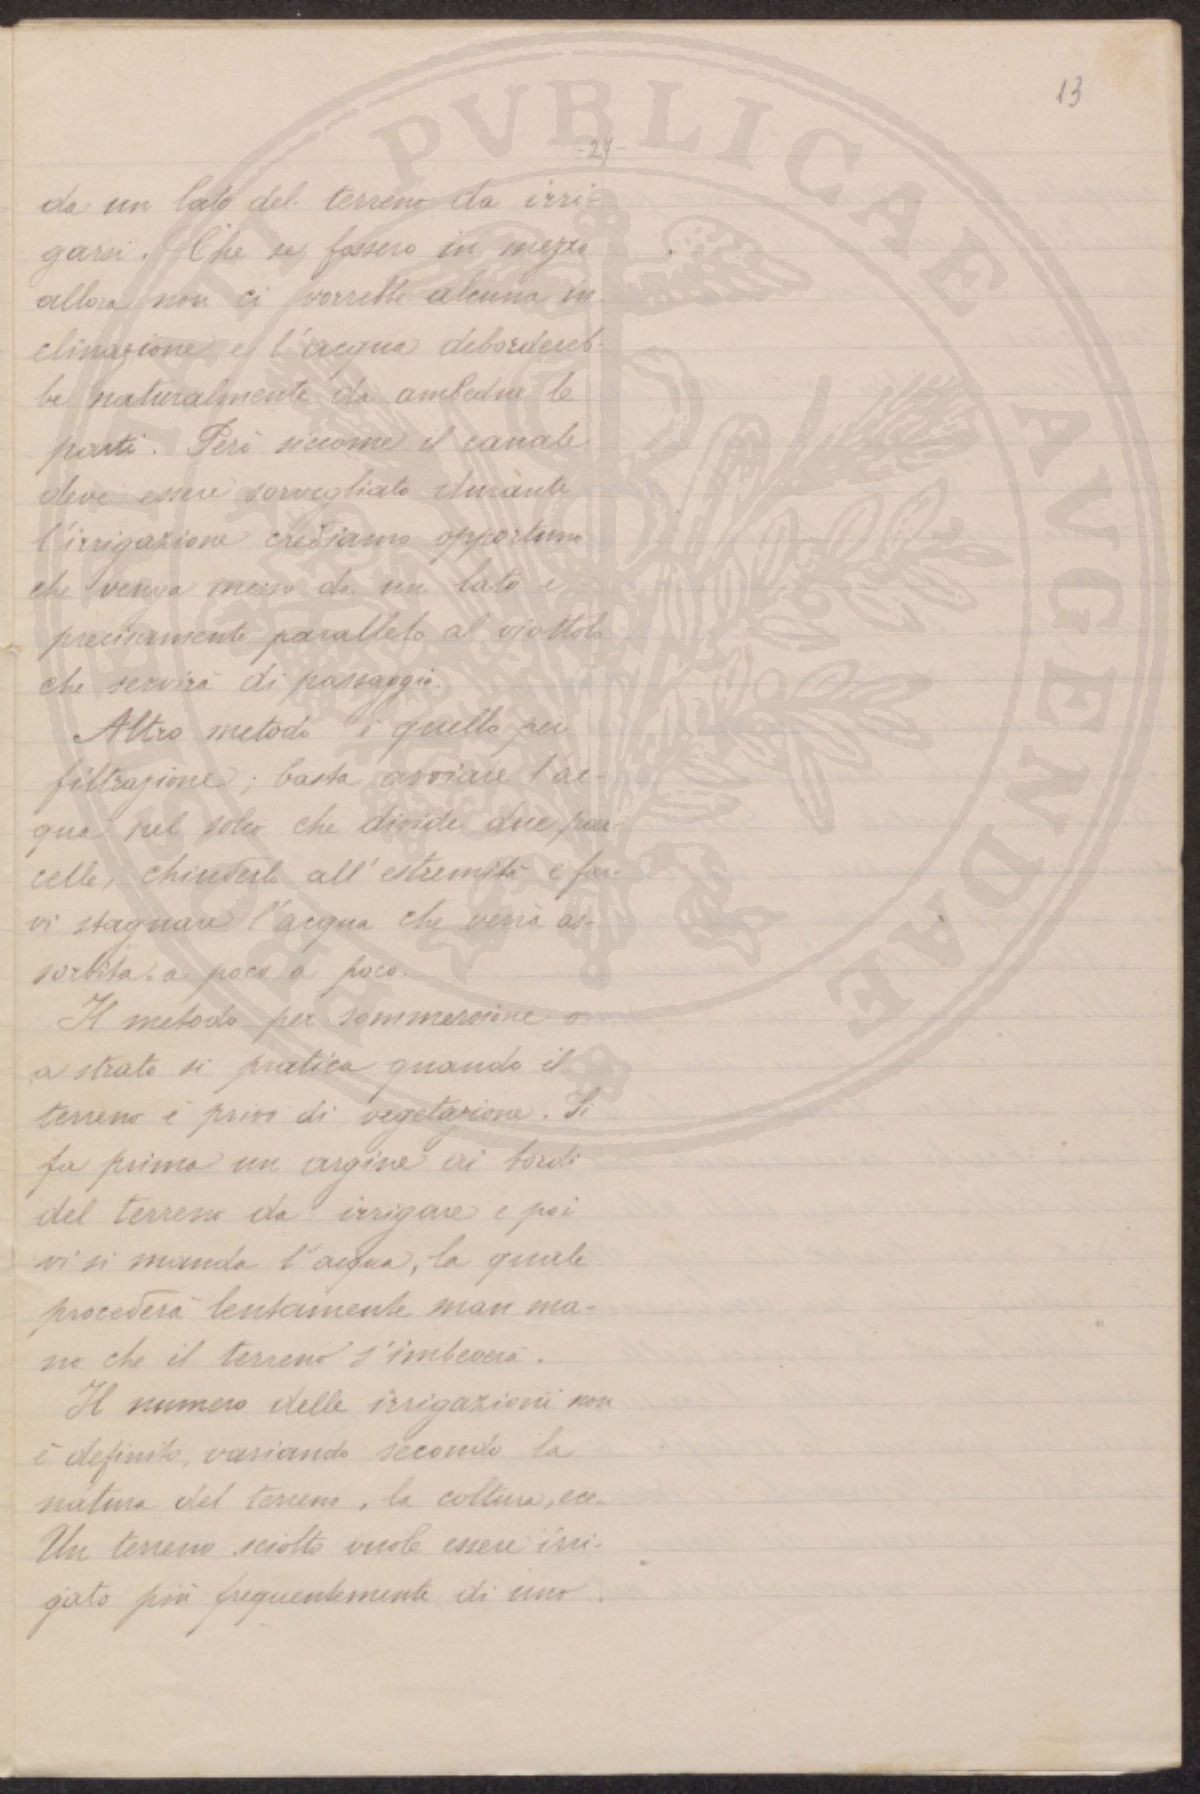 13
-24-
da un lato del terreno da irri-
garsi. Che se fossero in mezzo
allora non ci vorrebbe alcuna in-
clinazione e l'acqua debordereb-
be naturalmente da ambedue le
parti. Però siccome il canale
deve essere sorvegliato durante
l'irrigazione crediamo opportuno
che venga messo da un lato e
precisamente parallelo al viottolo
che servirà di passaggio.
Altro metodo è quello per
filtrazione; basta avviare l'ac-
qua nel solco che divide due par-
celle, chiuderlo all'estremità e far-
vi stagnare l'acqua che verrà as-
sorbita a poco a poco.
Il metodo per sommersione o
a strato si pratica quando il
terreno è privo di vegetazione. Si
fa prima un argine ai bordi
del terreno da irrigare e poi
vi si manda l'acqua, la quale
procederà lentamente man ma-
no che il terreno s'imbeverà.
Il numero delle irrigazioni non
è definito, variando secondo la
natura del terreno, la coltura, ecc.
Un terreno sciolto vuole essere irri-
gato più frequentemente di uno
PUBLICAE AVGENDAE